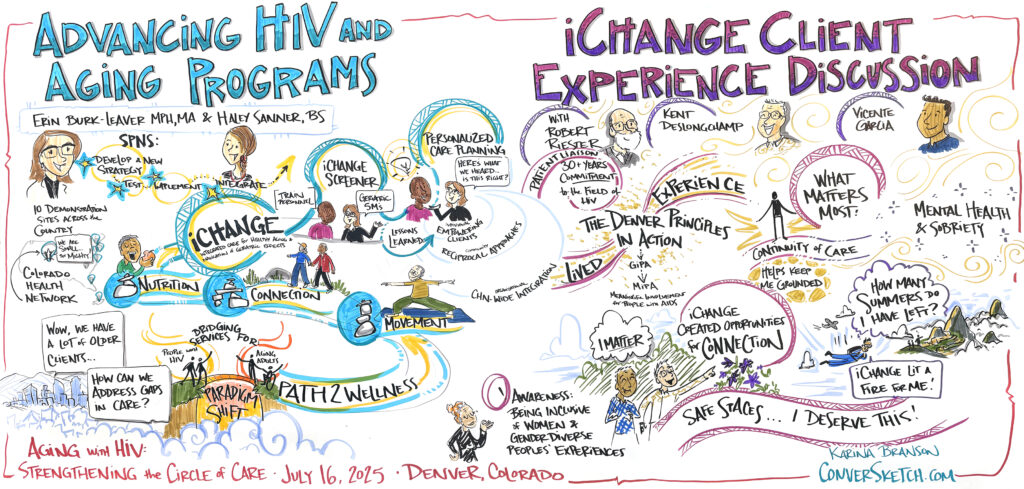 ADVANCING HIV AND
AGING PROGRAMS
ERIN BURK-LEAVER MPH, MA & HALEY SANNER, BS
SPNS:
DEVELOP A NEW
STRATEGY
TEST
IMPLEMENT
INTEGRATE
10 DEMONSTRATION
SITES ACROSS the
COUNTRY
WE ARE
SMALL
BUT MIGHTY
COLORADO
HEALTH
NETWORK
TRAIN
PERSONNEL
iCHANGE
SCREENER
GERIATRIC
5M's
PERSONALIZED
CARE PLANNING
HERE'S WHAT
WE HEARD...
IS THIS RIGHT?
LESSONS
LEARNED
EMPOWERING
CLIENTS
COMMUNITY
RECIPROCAL APPROACHES
CHN-WIDE INTEGRATION
iCHANGE
INTEGRATED CARE for HEALTHY AGING &
NAVIGATION & GERIATRIC EFFECTS
NUTRITION
CONNECTION
MOVEMENT
WOW, WE HAVE
A LOT OF OLDER
CLIENTS...
HOW CAN WE
ADDRESS GAPS
IN CARE?
BRIDGING
SERVICES FOR
PEOPLE with
HIV
AGING
ADULTS
PARADIGM
SHIFT
PATH 2 WELLNESS
iCHANGE CLIENT
EXPERIENCE DISCUSSION
WITH
ROBERT
RIESTER
PATIENT LIAISON
30+ YEARS
COMMITMENT
to the FIELD of
HIV
KENT
DESLONGCHAMP
VICENTE
GARCIA
LIVED
EXPERIENCE
THE DENVER PRINCIPLES
IN ACTION
GIPA
MIPA
MEANINGFUL INVOLVEMENT
for PEOPLE with AIDS
WHAT
MATTERS
MOST:
CONTINUITY of CARE
HELPS KEEP
ME GROUNDED
MENTAL HEALTH
& SOBRIETY
I MATTER
iCHANGE
CREATED OPPORTUNITIES
for CONNECTION
HOW MANY
SUMMERS DO
I HAVE LEFT?
iCHANGE LIT A
FIRE FOR ME!
AWARENESS:
BEING INCLUSIVE
of WOMEN &
GENDER DIVERSE
PEOPLES' EXPERIENCES
SAFE SPACES... I DESERVE THIS!
AGING with HIV:
STRENGTHENING the CIRCLE of CARE · JULY 16, 2025 · DENVER, COLORADO
KARINA BRANSON
CONVERSKETCH.COM